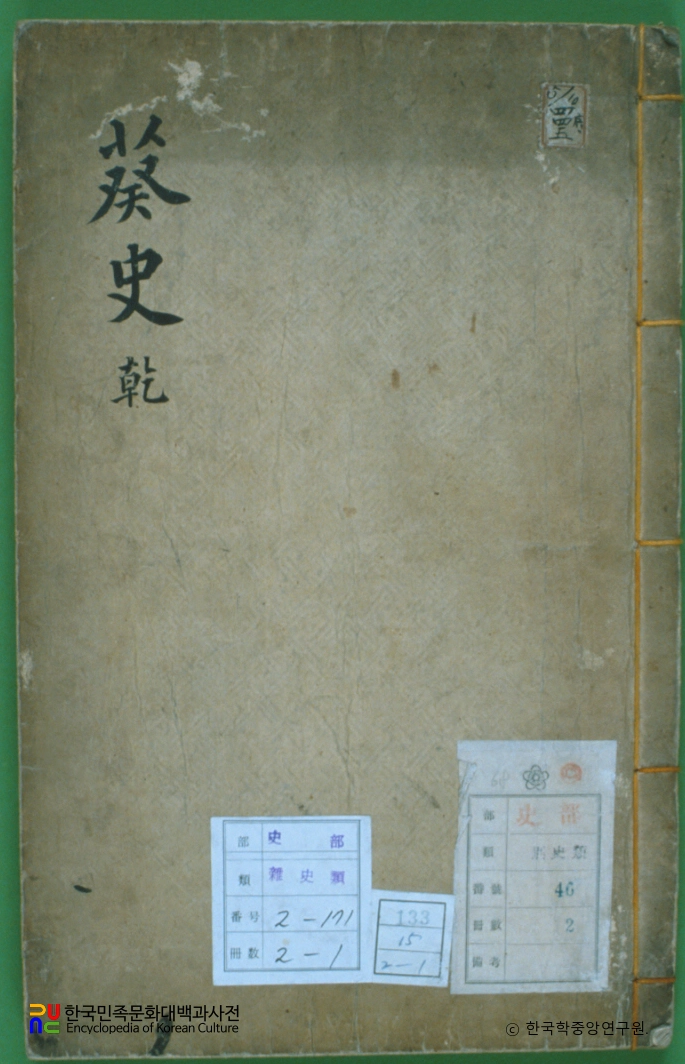 葵史 乾
史部
雜史類
番号 2-171
冊数 2-1
133
15
2-1
部 史部
類 史類
番號 46
冊數 2
備考
한국민족문화대백과사전
Encyclopedia of Korean Culture
© 한국학중앙연구원